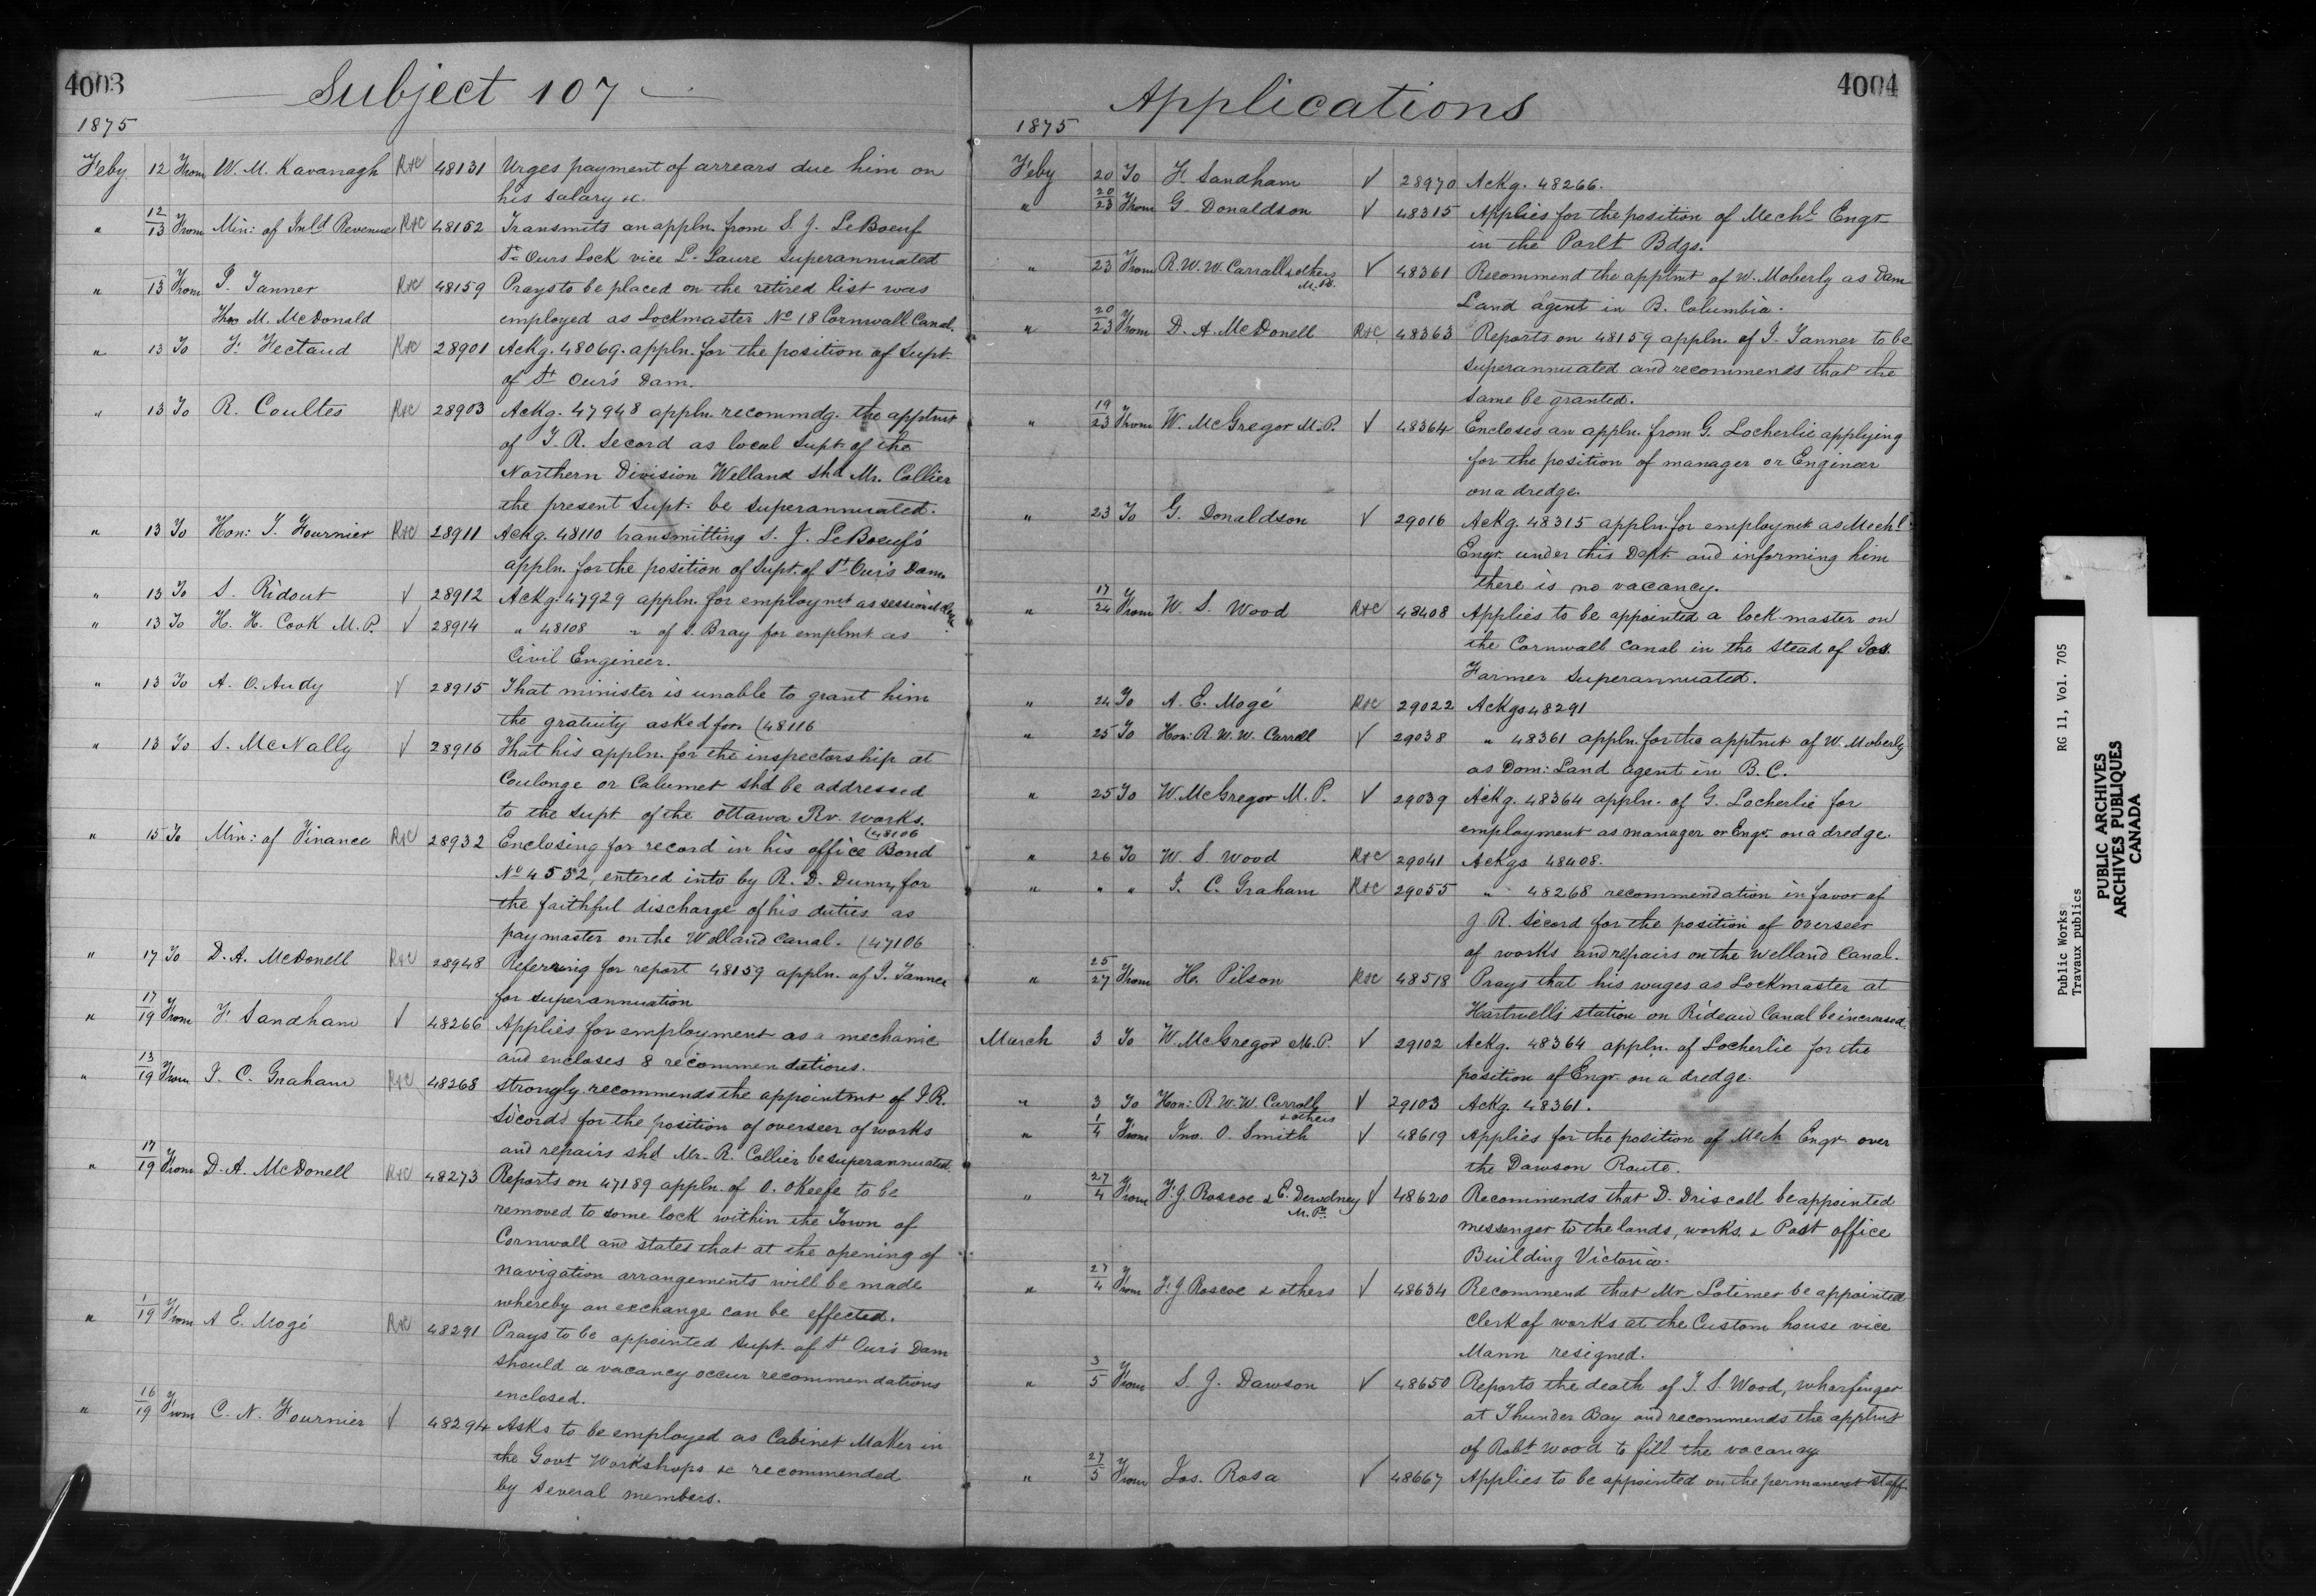 4003
Subject 107
1875
Feby 12 From W. M. Kavanagh R&C 48131 Urges payment of arrears due him on
his salary &c.
" 12/13 From Min: of Inld Revenue R&C 48152 Transmits an appln. from S. J. LeBoeuf
St Ours Lock vice L. Laure Superannuated
" 13 From I. Tanner R&C 48159 Prays to be placed on the retired list was
Thos M. McDonald employed as Lockmaster No 18 Cornwall Canal.
" 13 To F. Fectaud R&C 28901 Ackg. 48069. appln. for the position of Supt
of St Our's Dam.
" 13 To R. Coultes R&C 28903 Ackg. 47948 appln. recommdg. the apptmt
of J. R. Secord as local Supt. of the
Northern Division Welland shd Mr. Collier
the present Supt. be superannuated.
" 13 To Hon: T. Fournier R&C 28911 Ackg. 48110 transmitting S. J. LeBoeuf's
appln. for the position of Supt. of St Our's Dam.
" 13 To S. Ridout √ 28912 Ackg. 47929 appln. for employmet as sessional
" 13 To H. H. Cook M.P. √ 28914 " 48108 " of S. Bray for emplmt as
Civil Engineer.
" 13 To A. O. Audy √ 28915 That minister is unable to grant him
the gratuity asked for. (48116
" 13 To S. McNally √ 28916 That his appln. for the inspectorship at
Coulonge or Calumet shd be addressed
to the Supt of the Ottawa Rv. Works.
(48106
" 15 To Min: of Finance R&C 28932 Enclosing for record in his office Bond
No 4532, entered into by R. D. Dunn, for
the faithful discharge of his duties as
paymaster on the Welland Canal. (47106
" 17 To D. A. McDonell R&C 28948 Referring for report 48159 appln. of I. Tanner
for superannuation
" 17/19 From F. Sandham √ 48266 Applies for employment as a mechanic
and encloses 8 recommendations.
" 13/19 From J. C. Graham R&C 48268 strongly recommends the appointmt of J. R.
Secord for the position of overseer of works
and repairs shd Mr. R. Collier be superannuated.
" 17/19 From D. A. McDonell R&C 48273 Reports on 47189 appln. of O. OKeefe to be
removed to some lock within the Town of
Cornwall and states that at the opening of
navigation arrangements will be made
whereby an exchange can be effected.
" 1/19 From A E. Mogé R&C 48291 Prays to be appointed Supt. of St Our's Dam
should a vacancy occur recommendations
enclosed.
" 16/19 From C. N. Fournier √ 48294 Asks to be employed as Cabinet Maker in
the Govt Workshops &c recommended
by several members.
4004
Applications
1875
Feby 20 To F. Sandham √ 28970 Ackg. 48266.
" 20/23 From G. Donaldson √ 48315 Applies for the position of Mechl Engr
in the Parlt Bdgs.
" 23 From R. W. W. Carrall & others M.Ps. √ 48361 Recommend the apptmt of W. Moberly as Dom
Land agent in B. Columbia.
" 20/23 From D. A. McDonell R&C 48363 Reports on 48159 appln. of I. Tanner to be
superannuated and recommends that the
same be granted.
" 19/23 From W. McGregor M.P. √ 48364 Encloses an appln. from G. Locherlie applying
for the position of manager or Engineer
on a dredge.
" 23 To G. Donaldson √ 29016 Ackg. 48315 appln. for employmt as Mechl
Engr. under this Dept. and informing him
there is no vacancy.
" 17/24 From W. S. Wood R&C 48408 Applies to be appointed a lock master on
the Cornwall Canal in the stead of Jas.
Farmer superannuated.
" 24 To A. E. Mogé R&C 29022 Ackgs 48291
" 25 To Hon: R. W. W. Carrall √ 29038 " 48361 appln. for the apptmt of W. Moberly
as Dom: Land agent in B. C.
" 25 To W. McGregor M. P. √ 29039 Ackg. 48364 appln. of G. Locherlie for
employment as manager or Engr. on a dredge.
" 26 To W. S. Wood R&C 29041 Ackgs 48408.
" " " J. C. Graham R&C 29055 " 48268 recommendation in favor of
J. R. Secord for the position of overseer
of works and repairs on the Welland Canal.
" 25/27 From H. Pilson R&C 48518 Prays that his wages as Lockmaster at
Hartwells station on Rideau Canal be increased.
March 3 To W. McGregor M.P. √ 29102 Ackg. 48364 appln. of Locherlie for the
position of Engr. on a dredge.
" 3 To Hon: R. W. W. Carroll & others √ 29103 Ackg. 48361.
" 1/4 From Jno. O. Smith √ 48619 Applies for the position of Mech Engr. over
the Dawson Route.
" 27/4 From F. J. Roscoe & E. Dewdney M.Ps. √ 48620 Recommends that D. Driscoll be appointed
messenger to the lands, works, & Post office
Building Victoria.
" 27/4 From F. J Roscoe & others √ 48634 Recommend that Mr Latimer be appointed
Clerk of works at the Custom house vice
Mann resigned.
" 3/5 From S. J. Dawson √ 48650 Reports the death of J. S. Wood, wharfinger
at Thunder Bay and recommends the apptmt
of Robt Wood to fill the vacancy.
" 27/5 From Jos. Rosa √ 48667 Applies to be appointed on the permanent staff
Public Works RG 11, Vol. 705
Travaux publics
PUBLIC ARCHIVES
ARCHIVES PUBLIQUES
CANADA